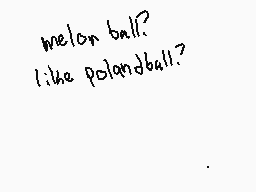 melon ball?
like polandball?